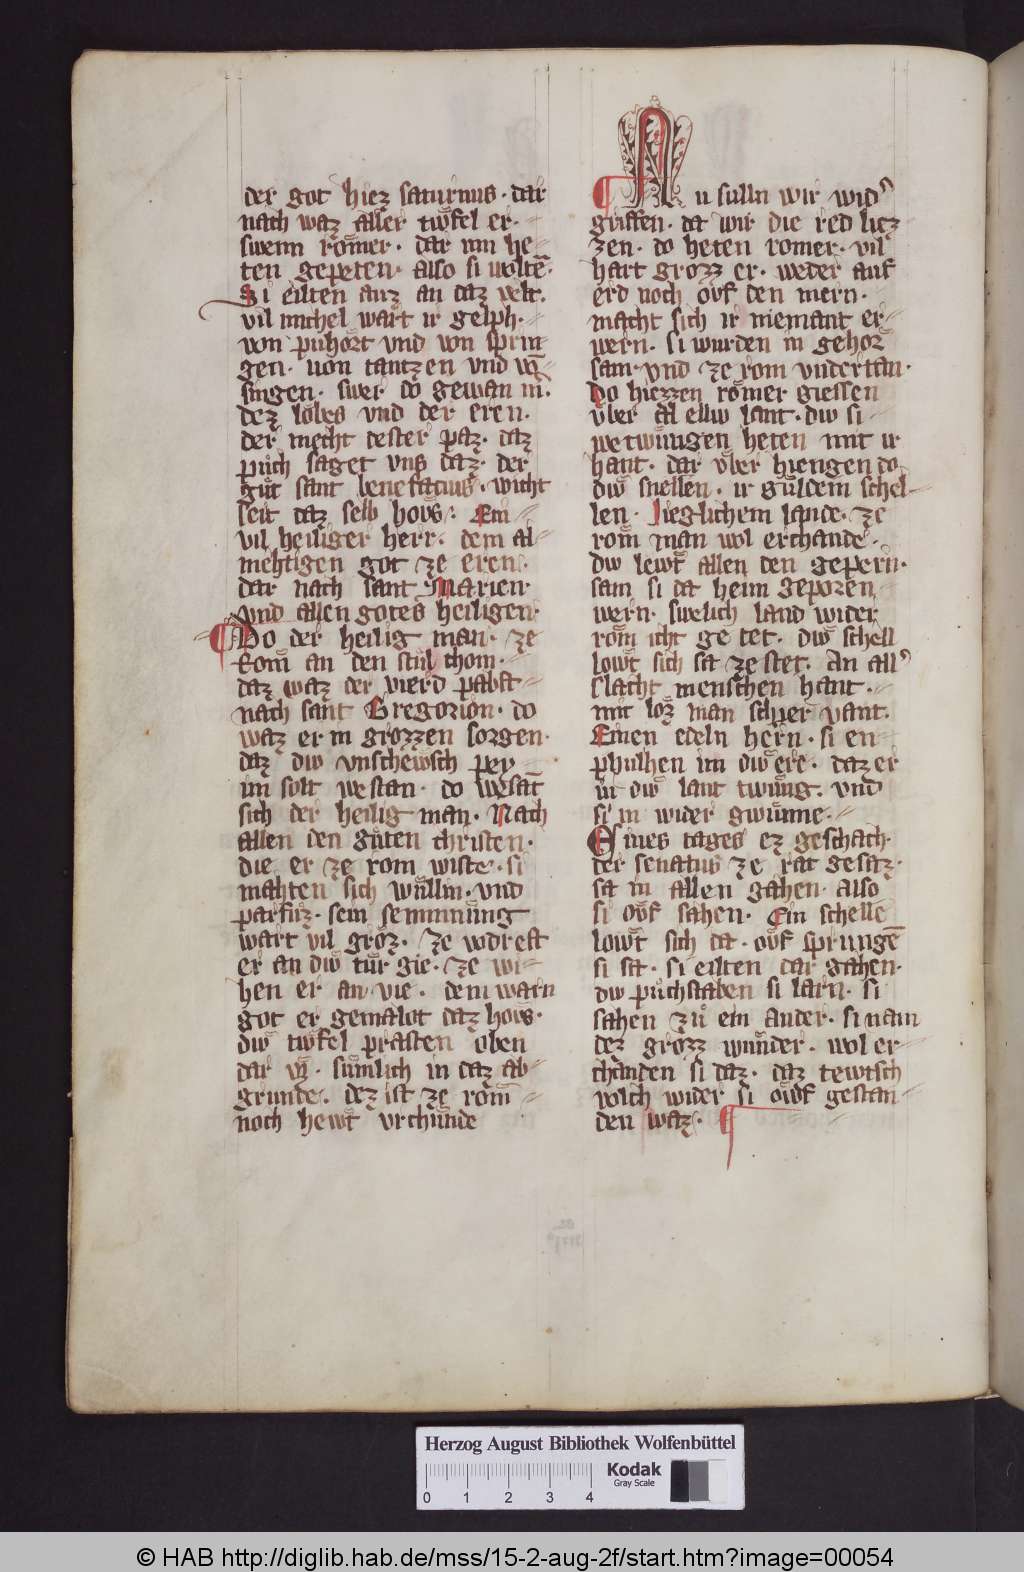 der got hiez saturnus · dar
nach waz aller twͤfel er ·
swenn römer · dar inn he-
ten gepeten · also si woltē ·
Si eilten auz an daz velt ·
vil michel wart ir gelph ·
von puhort vnd von sprin-
gen · von tantzen vnd vō
singen · swer do gewan in ·
dez lobes vnd der eren ·
der mecht dester paz · daz
půch saget vns daz · der
gůt sant benefatius · wicht
seit daz selb hovs · Ein
vil heiliger herr · dem al-
mehtigen got ze eren ·
dar nach sant Marien ·
vnd allen gotes heiligen ·
Do der heilig man · ze
Rom an den stůl chom ·
daz waz der vierd pabst
nach sant Gregorion · do
waz er in grozzen sorgen ·
daz diw vnschewsch pey
im solt westan · do wesāt
sich der heilig man · Nach
allen den gůten christen ·
die er ze rom wiste · si
mahten sich wullin · vnd
parfuz · sein semmnung
wart vil groz · ze vorest
er an diw tür gie · ze wi-
hen er an vie · dem warn
got er gemalot daz hovs ·
diw twfel prasten oben
dar vz · sümlich in daz ab-
grunde · dez ist ze rom
noch hewt vrchunde
Nu sulln wir wid᾽
griffen · da wir die red liez-
zen · do heten romer · vil
hart grozz er · weder auf
erd noch ovf den mern ·
macht sich ir niemant er-
wern · si wurden in gehor
sam · vnd ze rom vndertan ·
Do hiezzen römer giessen
vber al elliw lant · diw si
petwungen heten mit ir
hant · dar vber hiengen do
diw snellen · ir guldein schel-
len · Jieglichem lande · ze
rom man wol erchande ·
diw lewt allen den gepern ·
sam si da heim geporen
wern · swelich land wider
rom icht getet · diw schell
lowt sich sa ze stet · An all᾽
slacht menschen hant ·
mit loz man schyer vant ·
Einen edeln hern · si en
phulhen im diw ere · daz er
in diw lant twung · vnd
si in wider gwunne ·
Eines tages ez geschach ·
der senatus ze rat gesaz ·
sa in allen gahen · also
si ovf sahen · Ein schelle
lowt sich da · ovf sprungē
si sa · si eilten dar gahen ·
diw půchstaben si larn · si
sahen zů ein ander · si nam
dez grozz wunder · wol er-
chanden si daz · daz tewtsch
volch wider si ovf gestan-
den waz ·
Herzog August Bibliothek Wolfenbüttel
Kodak
Gray Scale
0 1 2 3 4
© HAB http://diglib.hab.de/mss/15-2-aug-2f/start.htm?image=00054